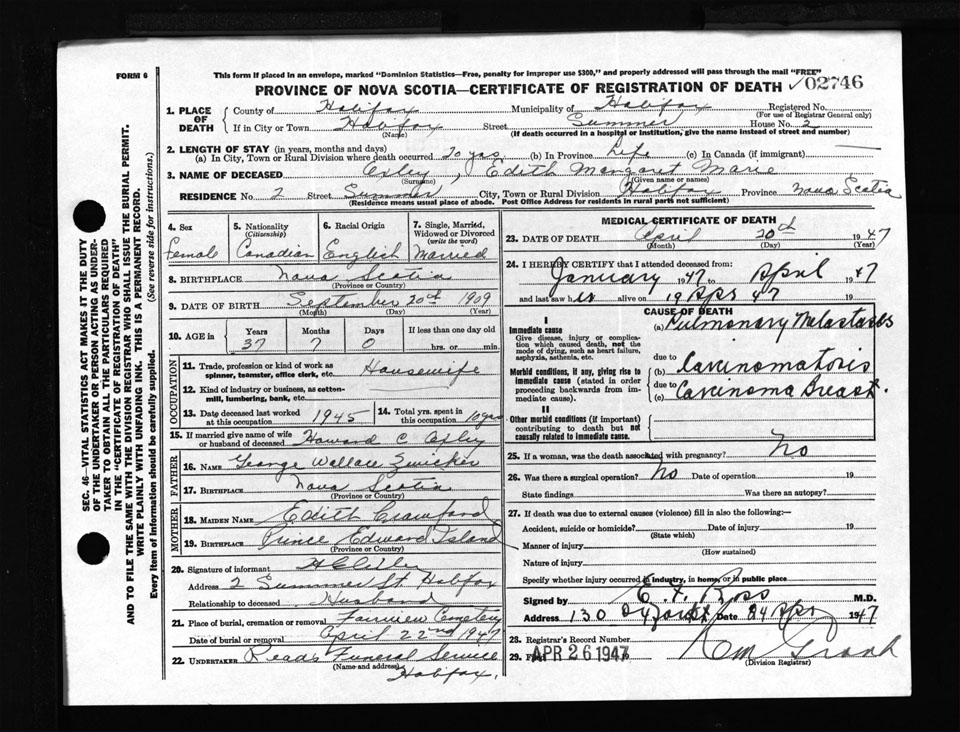 This form if placed in an envelope, marked "Dominion Statistics—Free, penalty for improper use $300," and properly addressed will pass through the mail "FREE"
FORM 6
PROVINCE OF NOVA SCOTIA—CERTIFICATE OF REGISTRATION OF DEATH
02746
1. PLACE OF DEATH
County of Halifax Municipality of Halifax Registered No.
(For use of Registrar General only)
If in City or Town Halifax Street Summer House No. 2
(Name) (If death occurred in a hospital or institution, give the name instead of street and number)
2. LENGTH OF STAY (in years, months and days)
(a) In City, Town or Rural Division where death occurred 20 yrs. (b) In Province Life (c) In Canada (if immigrant)
3. NAME OF DECEASED Oxley, Edith Margaret Marie
(Surname) (Given name or names)
RESIDENCE No. 2 Street Summer City, Town or Rural Division Halifax Province Nova Scotia
(Residence means usual place of abode. Post Office Address for residents in rural parts not sufficient)
4. Sex
Female
5. Nationality (Citizenship)
Canadian
6. Racial Origin
English
7. Single, Married, Widowed or Divorced (write the word)
Married
8. BIRTHPLACE Nova Scotia
(Province or Country)
9. DATE OF BIRTH September 20th 1909
(Month) (Day) (Year)
10. AGE in
Years Months Days If less than one day old
37 7 0 hrs. or min.
OCCUPATION
11. Trade, profession or kind of work as spinner, teamster, office clerk, etc. Housewife
12. Kind of industry or business, as cotton-mill, lumbering, bank, etc.
13. Date deceased last worked at this occupation 1945
14. Total yrs. spent in this occupation 10 yrs
15. If married give name of wife or husband of deceased Howard C Oxley
FATHER
16. NAME George Wallace Zwicker
17. BIRTHPLACE Nova Scotia
(Province or Country)
MOTHER
18. MAIDEN NAME Edith Crawford
19. BIRTHPLACE Prince Edward Island
(Province or Country)
20. Signature of informant
Address 2 Summer St. Halifax
Relationship to deceased Husband
21. Place of burial, cremation or removal Fairview Cemetery
Date of burial or removal April 22nd 1947
22. UNDERTAKER Read's Funeral Service
(Name and address) Halifax.
MEDICAL CERTIFICATE OF DEATH
23. DATE OF DEATH April 20th 1947
(Month) (Day) (Year)
24. I HEREBY CERTIFY that I attended deceased from:
January 1947 to April 1947
and last saw her alive on 19 Apr 47 19
CAUSE OF DEATH
I
Immediate cause
Give disease, injury or complication which caused death, not the mode of dying, such as heart failure, asphyxia, asthenia, etc.
(a) Pulmonary Metastases
due to
Morbid conditions, if any, giving rise to immediate cause (stated in order proceeding backwards from immediate cause).
(b) Carcinomatosis
due to
(c) Carcinoma Breast.
II
Other morbid conditions (if important) contributing to death but not causally related to immediate cause.
25. If a woman, was the death associated with pregnancy? No
26. Was there a surgical operation? No Date of operation 19
State findings Was there an autopsy?
27. If death was due to external causes (violence) fill in also the following:—
Accident, suicide or homicide? Date of injury 19
(State which)
Manner of injury
(How sustained)
Nature of injury
Specify whether injury occurred in industry, in home, or in public place
Signed by E. F. Ross M.D.
Address 130 Date 24 Apr 1947
28. Registrar's Record Number
29. Filed APR 26 1947
(Division Registrar)
SEC. 46—VITAL STATISTICS ACT MAKES IT THE DUTY OF THE UNDERTAKER OR PERSON ACTING AS UNDERTAKER TO OBTAIN ALL THE PARTICULARS REQUIRED IN THE "CERTIFICATE OF REGISTRATION OF DEATH" AND TO FILE THE SAME WITH THE DIVISION REGISTRAR WHO SHALL ISSUE THE BURIAL PERMIT.
WRITE PLAINLY WITH UNFADING INK. THIS IS A PERMANENT RECORD.
Every item of information should be carefully supplied. (See reverse side for instructions.)